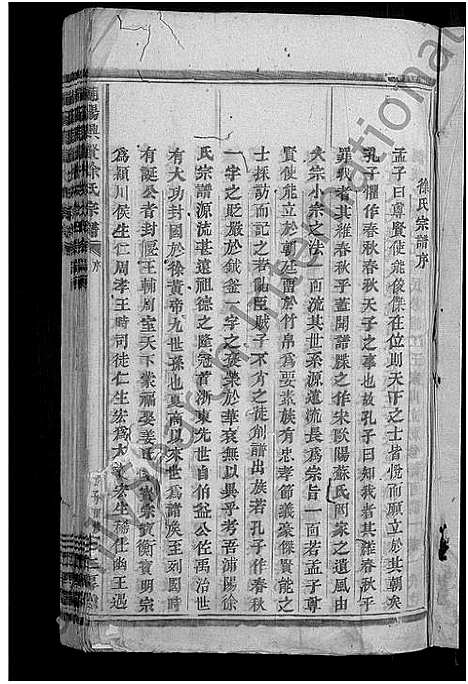 徐氏宗譜序
孟子曰尊賢使能俊傑在位則天下之士皆悅而願立於其朝矣
孔子懼作春秋春秋天子之事也故孔子曰知我者其維春秋乎
罪我者其維春秋乎蓋開譜牒之作宋歐陽蘇氏兩家之遺風由
大宗小宗之法一面流其世系源遠流長為宗旨一面若孟子尊
賢使能立於朝廷書於竹帛為要素族有忠孝節義豪傑賢能之
士採訪而記之若亂臣賊子不方之徒削譜出族若孔子作春秋
一字之貶嚴於鈇鉞一字之褒榮於華袞無以異乎考吾浦陽徐
氏宗譜源流甚遠祖德之隆冠首浙東先世自伯益公佐禹治世
有大功封國於徐黃帝九世孫也夏商以來世為諸侯至列國時
有誕公者封偃王輔周室天下蒙福娶姜氏生寶宗寶衡寶明宗
為潁川侯生仁周孝王時司徒仁生宏為大 宏生 仕幽王遇
浦陽興賢徐氏宗譜 序
My Search International